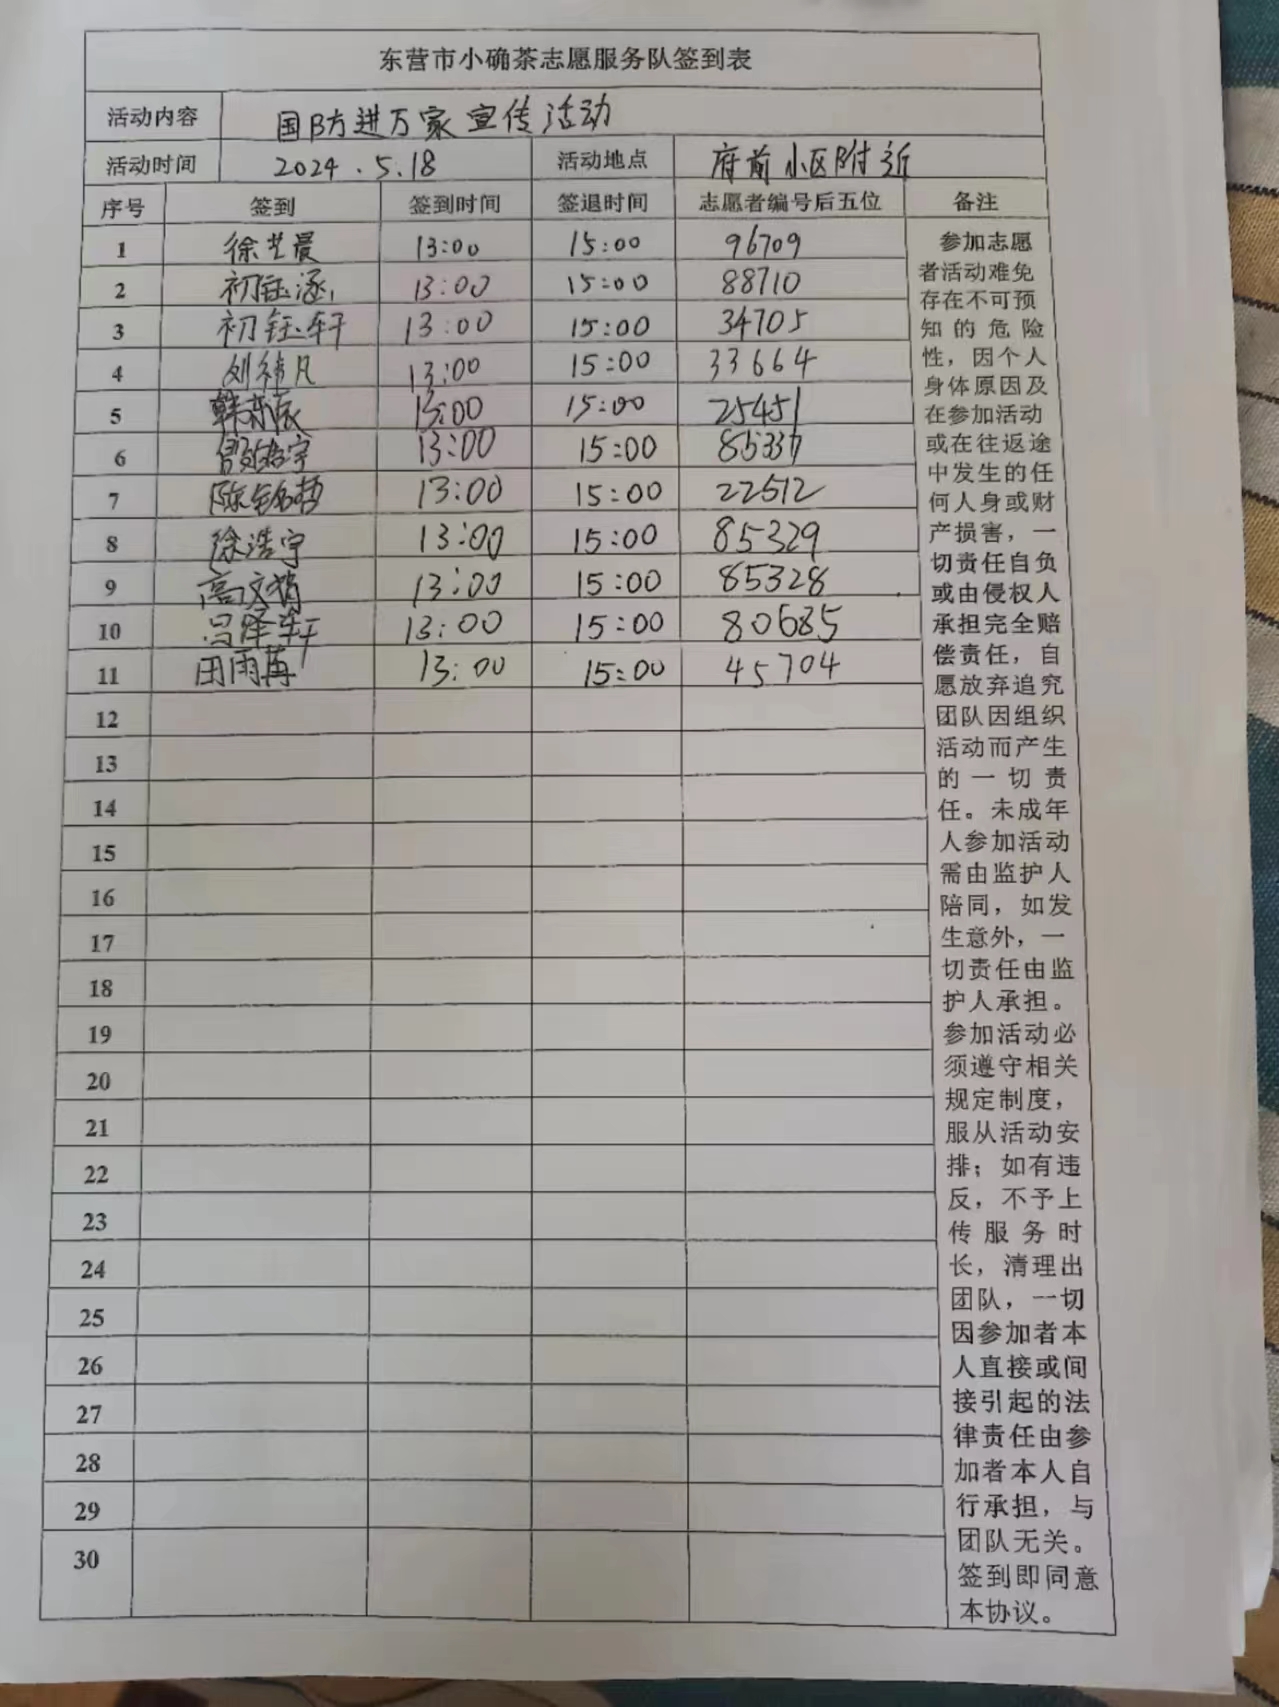 东营市小确茶志愿服务队签到表
活动内容 国防进万家宣传活动
活动时间 2024.5.18 活动地点 府前小区附近
序号 签到 签到时间 签退时间 志愿者编号后五位 备注
1 徐艺晨 13:00 15:00 96709
2 初钰涵 13:00 15:00 88710
3 初钰轩 13:00 15:00 34705
4 刘祎凡 13:00 15:00 33664
5 13:00 15:00 25451
6 13:00 15:00 85337
7 13:00 15:00 22512
8 徐浩宇 13:00 15:00 85329
9 13:00 15:00 85328
10 13:00 15:00 80685
11 13:00 15:00 45704
12
13
14
15
16
17
18
19
20
21
22
23
24
25
26
27
28
29
30
参加志愿
者活动难免
存在不可预
知的危险
性，因个人
身体原因及
在参加活动
或在往返途
中发生的任
何人身或财
产损害，一
切责任自负
或由侵权人
承担完全赔
偿责任，自
愿放弃追究
团队因组织
活动而产生
的一切责
任。未成年
人参加活动
需由监护人
陪同，如发
生意外，一
切责任由监
护人承担。
参加活动必
须遵守相关
规定制度，
服从活动安
排；如有违
反，不予上
传服务时
长，清理出
团队，一切
因参加者本
人直接或间
接引起的法
律责任由参
加者本人自
行承担，与
团队无关。
签到即同意
本协议。